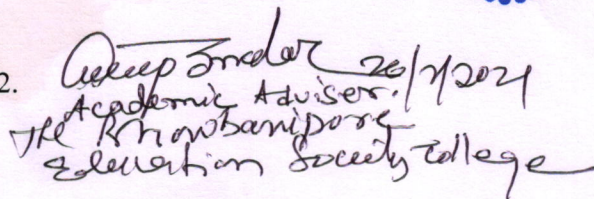 2. 26/7/2021
Academic Adviser.
The Bhowbanipore
Education Society College